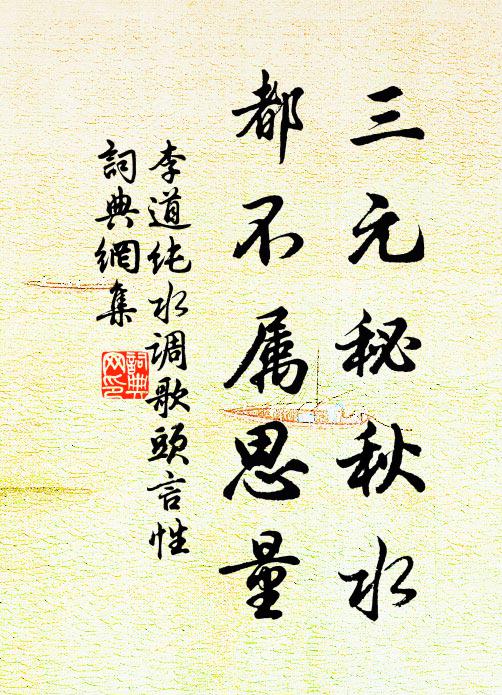 三元秘秋水
都不属思量
李道纯水调歌頭言性
詞典網集
詞典网印